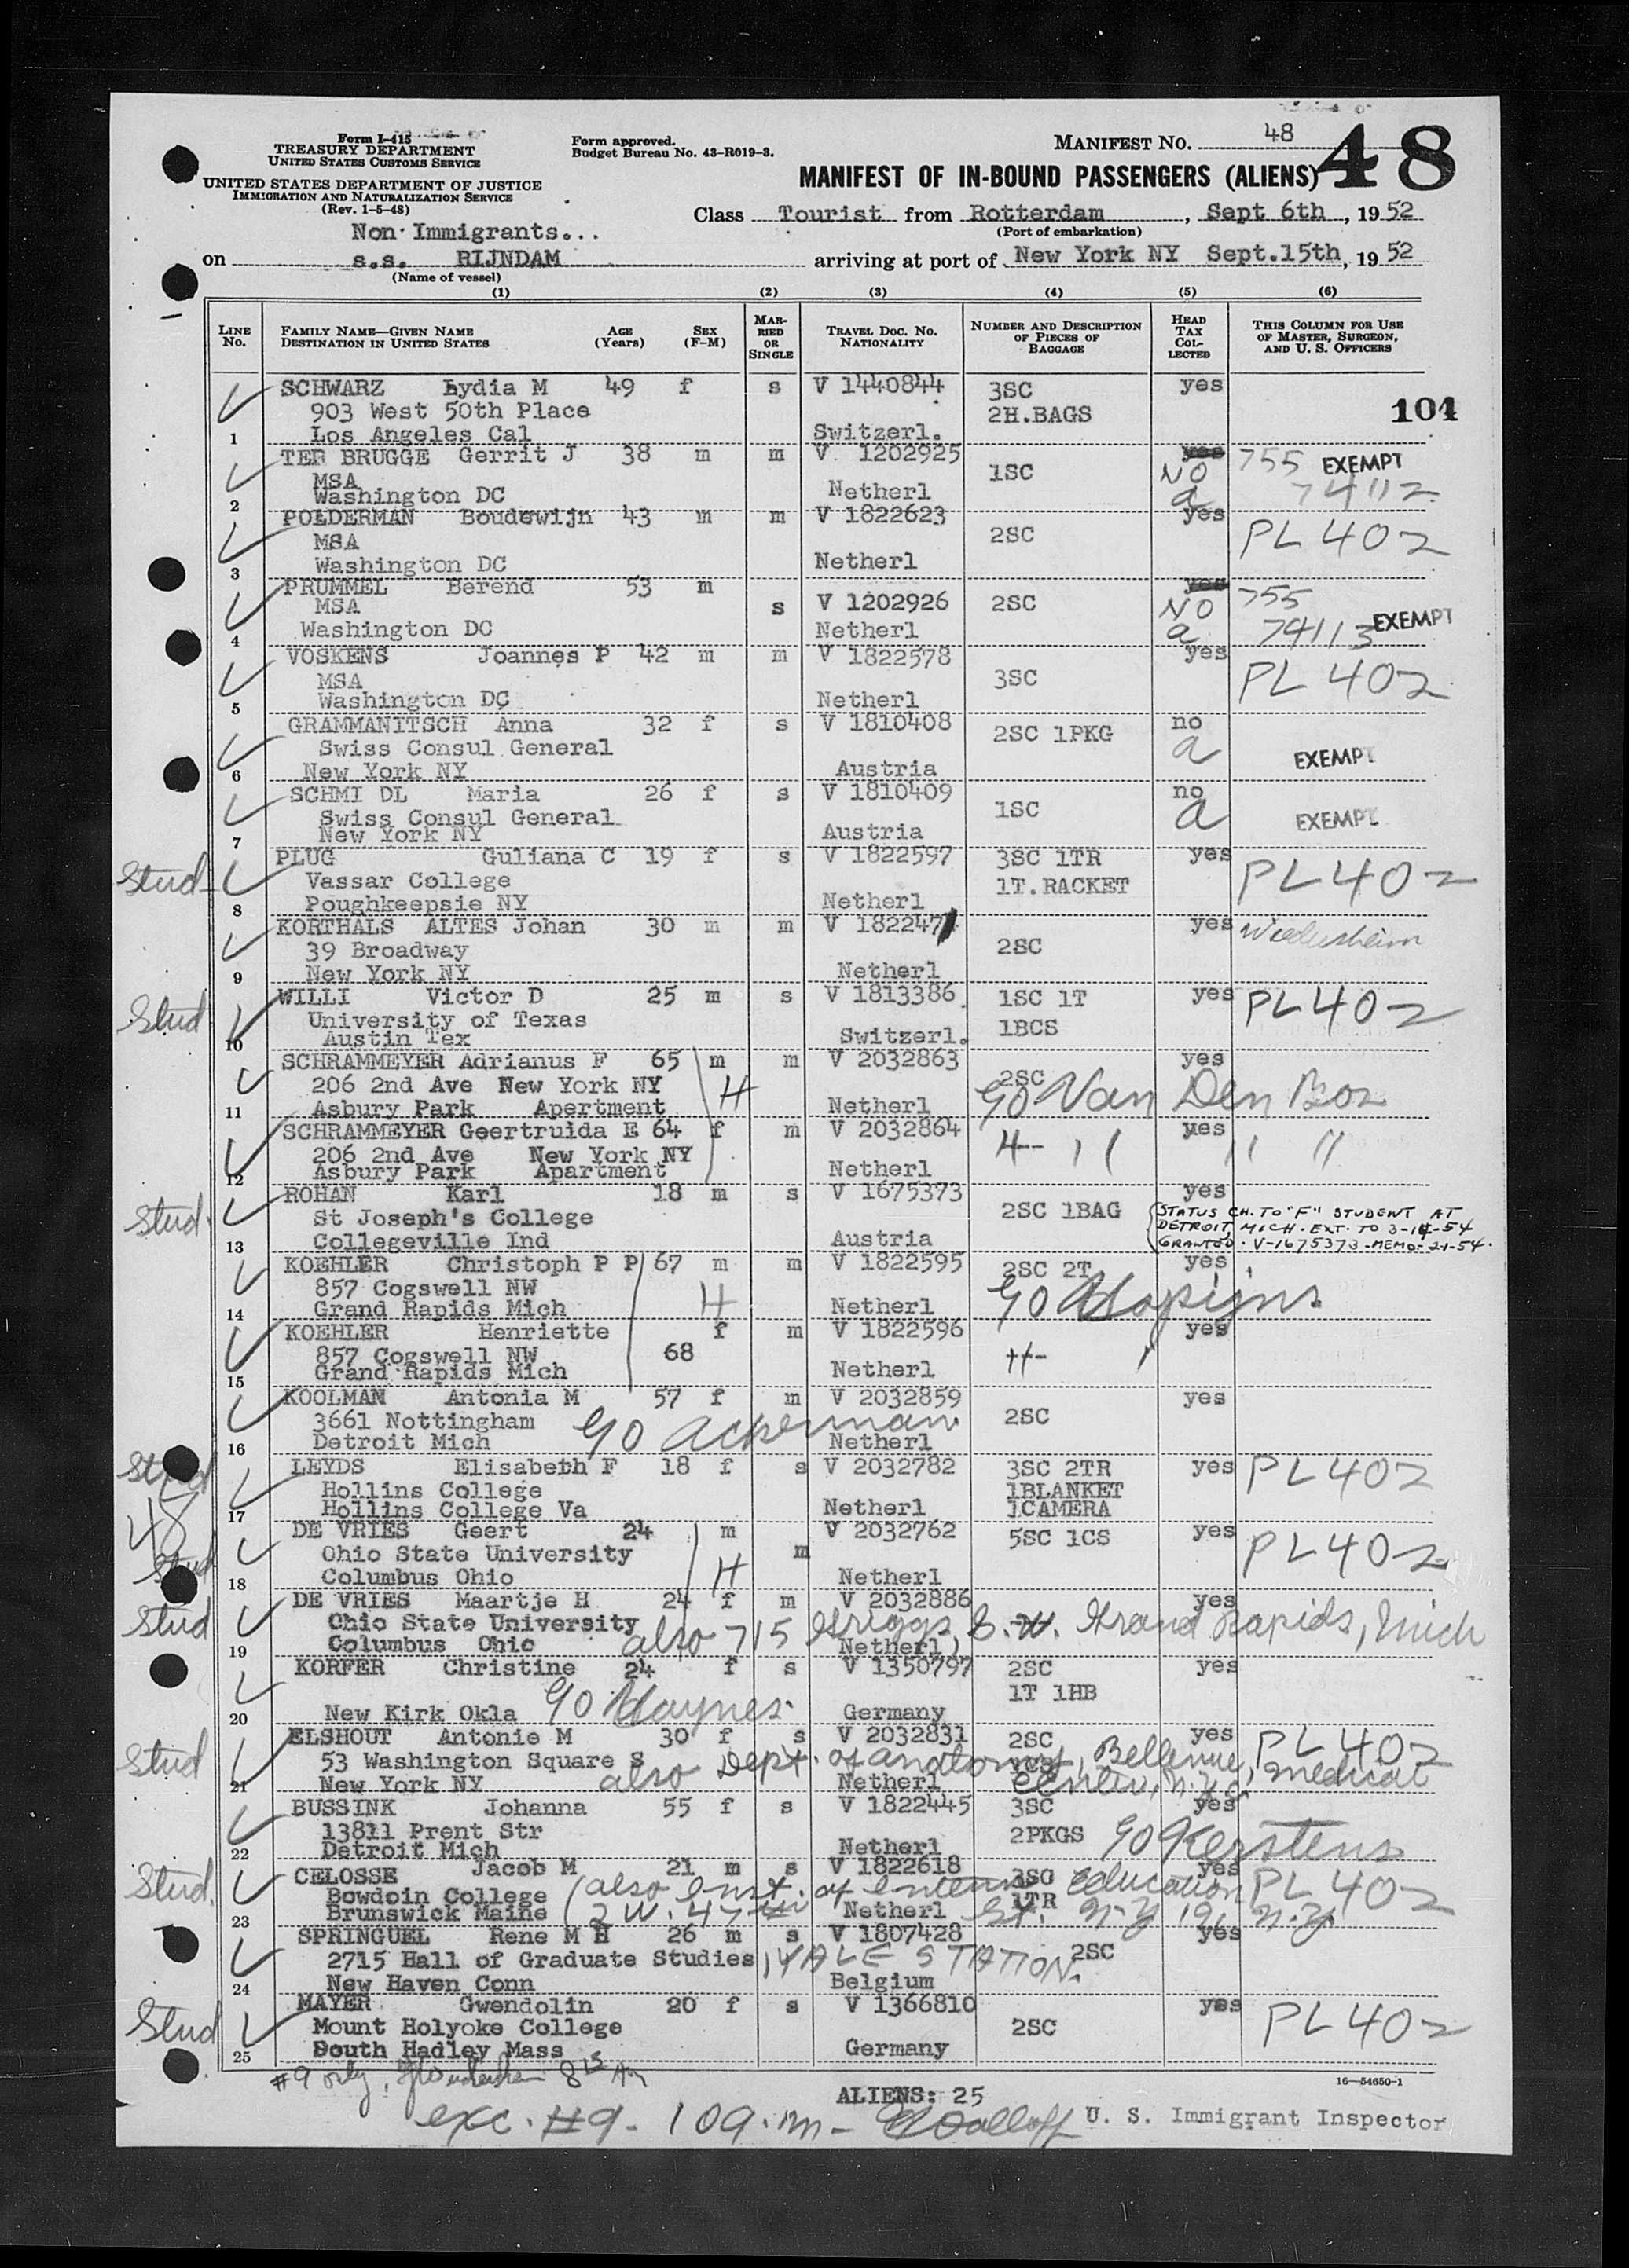 Form I-415
TREASURY DEPARTMENT
UNITED STATES CUSTOMS SERVICE
UNITED STATES DEPARTMENT OF JUSTICE
IMMIGRATION AND NATURALIZATION SERVICE
(Rev. 1-5-48)
Form approved.
Budget Bureau No. 43-R019-3.
MANIFEST NO. 48
48
MANIFEST OF IN-BOUND PASSENGERS (ALIENS)
Class Tourist from Rotterdam, Sept 6th, 1952
(Port of embarkation)
Non-Immigrants...
on s.s. RIJNDAM arriving at port of New York NY Sept.15th, 1952
(Name of vessel)
(1) (2) (3) (4) (5) (6)
LINE No. FAMILY NAME—GIVEN NAME DESTINATION IN UNITED STATES AGE (Years) SEX (F-M) MARRIED OR SINGLE TRAVEL DOC. NO. NATIONALITY NUMBER AND DESCRIPTION OF PIECES OF BAGGAGE HEAD TAX COLLECTED THIS COLUMN FOR USE OF MASTER, SURGEON, AND U. S. OFFICERS
SCHWARZ Lydia M 49 f s V 1440844 3SC yes
903 West 50th Place 2H.BAGS 104
1 Los Angeles Cal Switzerl.
TER BRUGGE Gerrit J 38 m m V 1202925 1SC yes 755 EXEMPT
MSA NO 74112
2 Washington DC Netherl a
POLDERMAN Boudewijn 43 m m V 1822623 2SC yes PL 402
MSA
3 Washington DC Netherl
PRUMMEL Berend 53 m s V 1202926 2SC yes 755
MSA NO 74113 EXEMPT
4 Washington DC Netherl a
VOSKENS Joannes P 42 m m V 1822578 3SC yes PL 402
MSA
5 Washington DC Netherl
GRAMMANITSCH Anna 32 f s V 1810408 2SC 1PKG no
Swiss Consul General a
6 New York NY Austria EXEMPT
SCHMI DL Maria 26 f s V 1810409 1SC no
Swiss Consul General a EXEMPT
7 New York NY Austria
PLUG Guliana C 19 f s V 1822597 3SC 1TR yes
Stud Vassar College 1T.RACKET PL 402
8 Poughkeepsie NY Netherl
KORTHALS ALTES Johan 30 m m V 182247 yes
39 Broadway 2SC
9 New York NY Netherl
WILLI Victor D 25 m s V 1813386 1SC 1T yes PL 402
Stud University of Texas 1BCS
10 Austin Tex Switzerl.
SCHRAMMEYER Adrianus F 65 m m V 2032863 2SC yes
206 2nd Ave New York NY H
11 Asbury Park Apertment Netherl c/o Van Den Bos
SCHRAMMEYER Geertruida E 64 f m V 2032864 yes
206 2nd Ave New York NY " "
12 Asbury Park Apartment Netherl
ROHAN Karl 18 m s V 1675373 2SC 1BAG yes
Stud St Joseph's College
13 Collegeville Ind Austria
STATUS CH. TO "F" STUDENT AT
DETROIT, MICH. EXT. TO 3-14-54
GRANTED. V-1675373-MEMO-2-1-54.
KOEHLER Christoph P P 67 m m V 1822595 2SC 2T yes
857 Cogswell NW H
14 Grand Rapids Mich Netherl
KOEHLER Henriette 68 f m V 1822596 yes
857 Cogswell NW
15 Grand Rapids Mich Netherl
KOOLMAN Antonia M 57 f m V 2032859 2SC yes
3661 Nottingham c/o Ackerman
16 Detroit Mich Netherl
LEYDS Elisabeth F 18 f s V 2032782 3SC 2TR yes PL 402
Stud Hollins College 1BLANKET
17 Hollins College Va Netherl 1CAMERA
48
DE VRIES Geert 24 m m V 2032762 5SC 1CS yes PL 402
Stud Ohio State University
18 Columbus Ohio H Netherl
DE VRIES Maartje H 24 f m V 2032886 yes
Stud Ohio State University
19 Columbus Ohio Netherl
also 715 Griggs S.W. Grand Rapids, Mich
KORFER Christine 24 f s V 1350797 2SC yes
1T 1HB
20 New Kirk Okla c/o Haynes Germany
ELSHOUT Antonie M 30 f s V 2032831 2SC yes PL 402
Stud 53 Washington Square S
21 New York NY Netherl
also Dept. of anatomy, Bellevue, Medical Center, N.Y.C.
BUSSINK Johanna 55 f s V 1822445 3SC yes
13811 Prent Str 2PKGS c/o Kerstens
22 Detroit Mich Netherl
CELOSSE Jacob M 21 m s V 1822618 3SC yes PL 402
Stud. Bowdoin College 1TR
23 Brunswick Maine Netherl
(also Inst. of Intern. Education
2 W. 45th St. N.Y. 19, N.Y.
SPRINGUEL Rene M H 26 m s V 1807428 2SC yes
2715 Hall of Graduate Studies, YALE STATION.
24 New Haven Conn Belgium
MAYER Gwendolin 20 f s V 1366810 2SC yes PL 402
Stud Mount Holyoke College
25 South Hadley Mass Germany
16—54650-1
#9 only,
ALIENS: 25
exc. #9 - 109. m - U. S. Immigrant Inspector